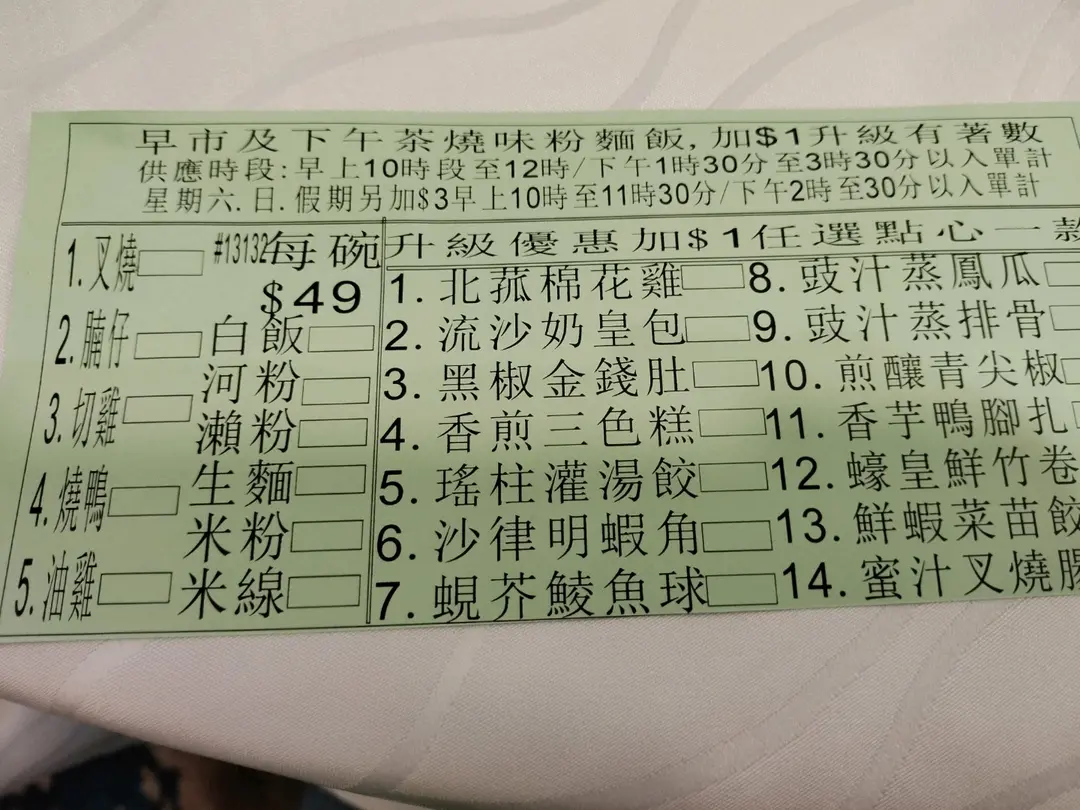 早市及下午茶燒味粉麵飯,加$1升級有著數
供應時段:早上10時段至12時/下午1時30分至3時30分以入單計
星期六.日.假期另加$3早上10時至11時30分/下午2時至30分以入單計
#13132每碗
$49
1.叉燒
2.腩仔
3.切雞
4.燒鴨
5.油雞
白飯
河粉
瀨粉
生麵
米粉
米線
升級優惠加$1任選點心一款
1.北菰棉花雞
2.流沙奶皇包
3.黑椒金錢肚
4.香煎三色糕
5.瑤柱灌湯餃
6.沙律明蝦角
7.蜆芥鯪魚球
8.豉汁蒸鳳瓜
9.豉汁蒸排骨
10.煎釀青尖椒
11.香芋鴨腳扎
12.蠔皇鮮竹卷
13.鮮蝦菜苗餃
14.蜜汁叉燒腸